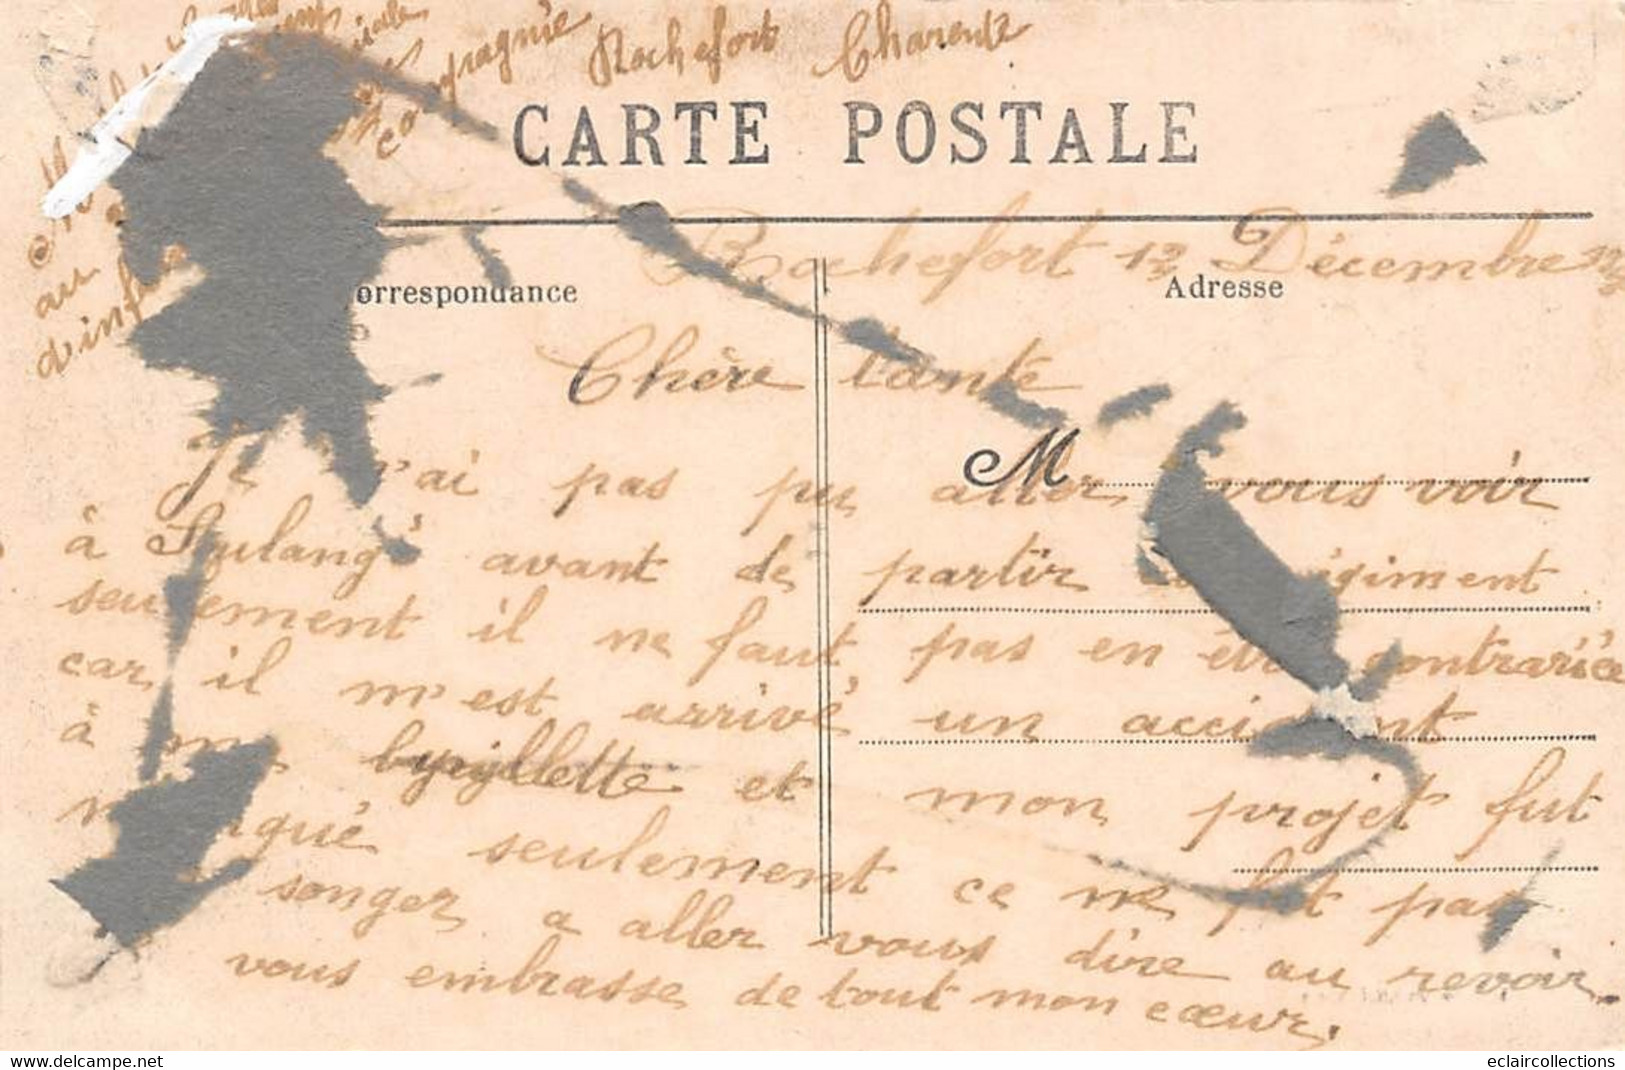 compagnie Rochefort Charente
au
d'inf
CARTE POSTALE
Rochefort 13 Décembre
orrespondance
Adresse
Chère tante
M
Je n'ai pas pu aller vous voir
à avant de partir au régiment
seulement il ne faut pas en être contrariée
car il m'est arrivé un accident
à et mon projet fut
manqué seulement ce ne fut pas
songer a aller vous dire au revoir
vous embrasse de tout mon cœur.
delcampe.net
eclaircollections